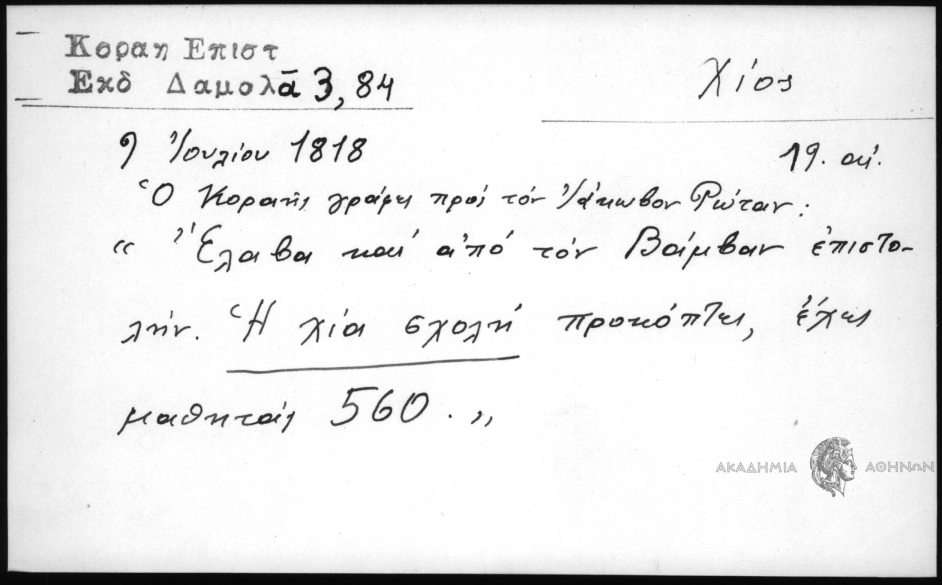 Κοραη Επιστ
Εκδ Δαμαλᾶ 3, 84
Χίος
9 Ἰουλίου 1818
19. αἰ.
Ὁ Κοραῆς γράφει πρὸς τὸν Ἰάκωβον Ρώταν:
" Ἔλαβα καὶ ἀπὸ τὸν Βάμβαν ἐπιστο-
λήν. Ἡ χία σχολὴ προκόπτει, ἔχει
μαθητὰς 560. "
ΑΚΑΔΗΜΙΑ ΑΘΗΝΩΝ